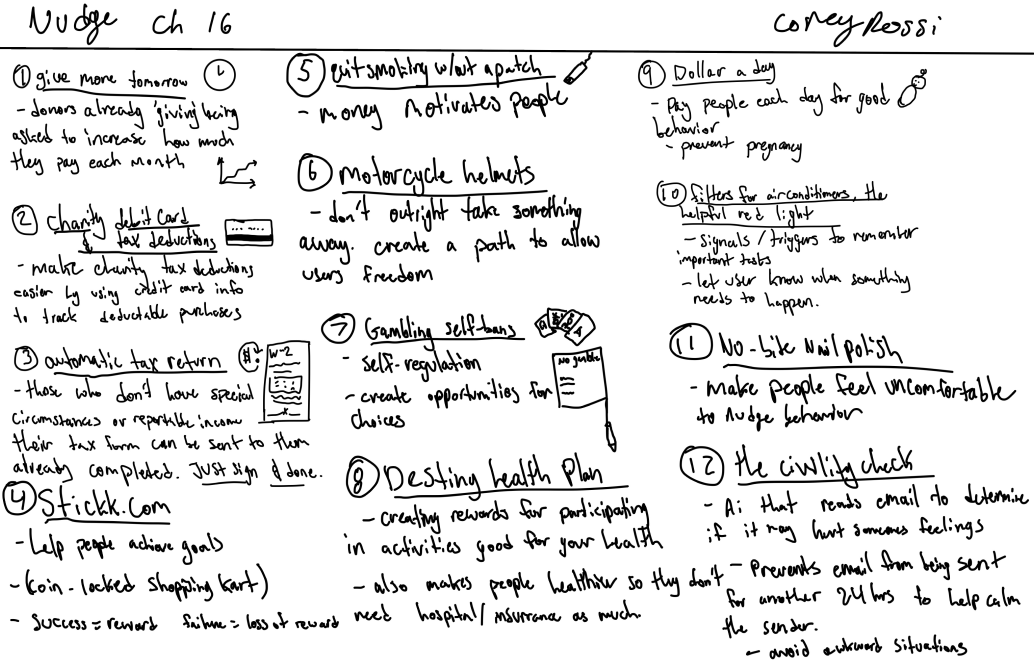 Nudge Ch 16
Corey Rossi
① give more tomorrow
- donors already 'giving' being
asked to increase how much
they pay each month
② Charity debit card
& tax deductions
- make charity tax deductions
easier by using credit card info
to track deductable purchases
③ automatic tax return
$!
W-2
- those who don't have special
Circumstances or reportable income
their tax form can be sent to them
already completed. JUST sign & done.
④ Stickk.com
- Help people achieve goals
- (coin-locked shopping kart)
- Success = reward failure = loss of reward
⑤ quit smoking w/out a patch
- money motivates people
⑥ Motorcycle helmets
- don't outright take something
away. create a path to allow
users freedom
⑦ Gambling self-bans
A
No gamble
- self-regulation
- create opportunities for
choices
⑧ Destiny health Plan
- creating rewards for participating
in activities good for your health
- also makes people healthier so they don't
need hospital/insurance as much
⑨ Dollar a day
- Pay people each day for good
behavior
- prevent pregnancy
⑩ filters for airconditioners, the
helpful red light
- Signals / triggers to remember
important tasks
- let user know when something
needs to happen.
⑪ No-bite Nail polish
- make people feel uncomfortable
to nudge behavior
⑫ the civility check
- Ai that reads email to determine
if it may hurt someones feelings
- Prevents email from being sent
for another 24 hrs to help calm
the sender.
- avoid awkward situations